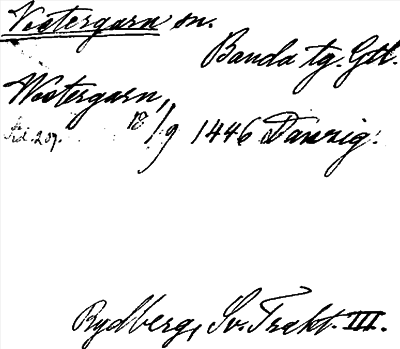 Västergarn sn.
Banda tg. Gtl.
Westergarn,
18/9 1446 Danzig.
Rydberg, Sv. Trakt. III.